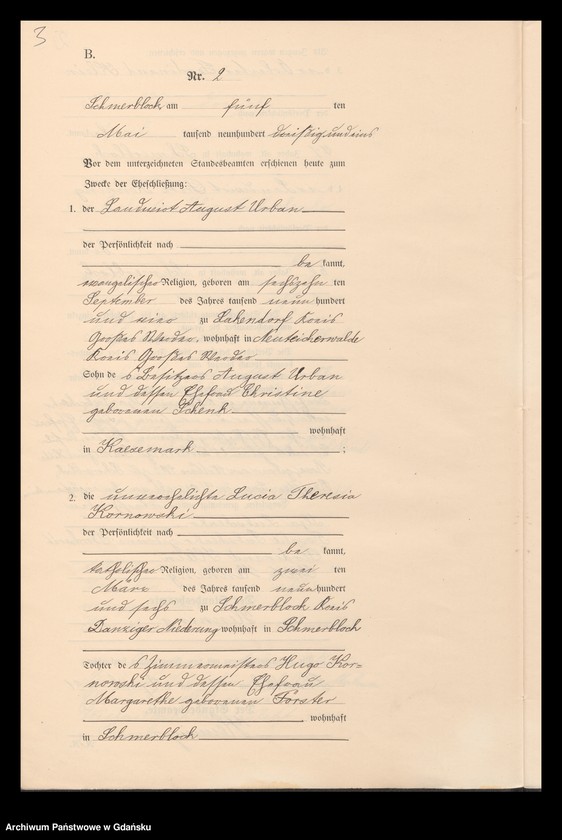 3
B.
Nr. 2
Schmerblock, am fünf ten
Mai tausend neunhundert dreißigundeins
Vor dem unterzeichneten Standesbeamten erschienen heute zum
Zwecke der Eheschließung:
1. der Landwirt August Urban
der Persönlichkeit nach
be kannt,
evangelischer Religion, geboren am sechszehn ten
September des Jahres tausend neunhundert
und vier zu Lakendorf Kreis
Großes Werder, wohnhaft in Neuteicherwalde
Kreis Großes Werder
Sohn des Besitzers August Urban
und dessen Ehefrau Christine
geborenen Schenk
wohnhaft
in Kaesemark ;
2. die unverehelichte Lucia Theresia
Kornowski
der Persönlichkeit nach
be kannt,
katholischer Religion, geboren am zwei ten
März des Jahres tausend neunhundert
und sechs zu Schmerblock Kreis
Danziger Niederung wohnhaft in Schmerblock
Tochter des Zimmermeisters Hugo Kor=
nowski und dessen Ehefrau
Margarethe geborenen Forster
wohnhaft
in Schmerblock
Archiwum Państwowe w Gdańsku